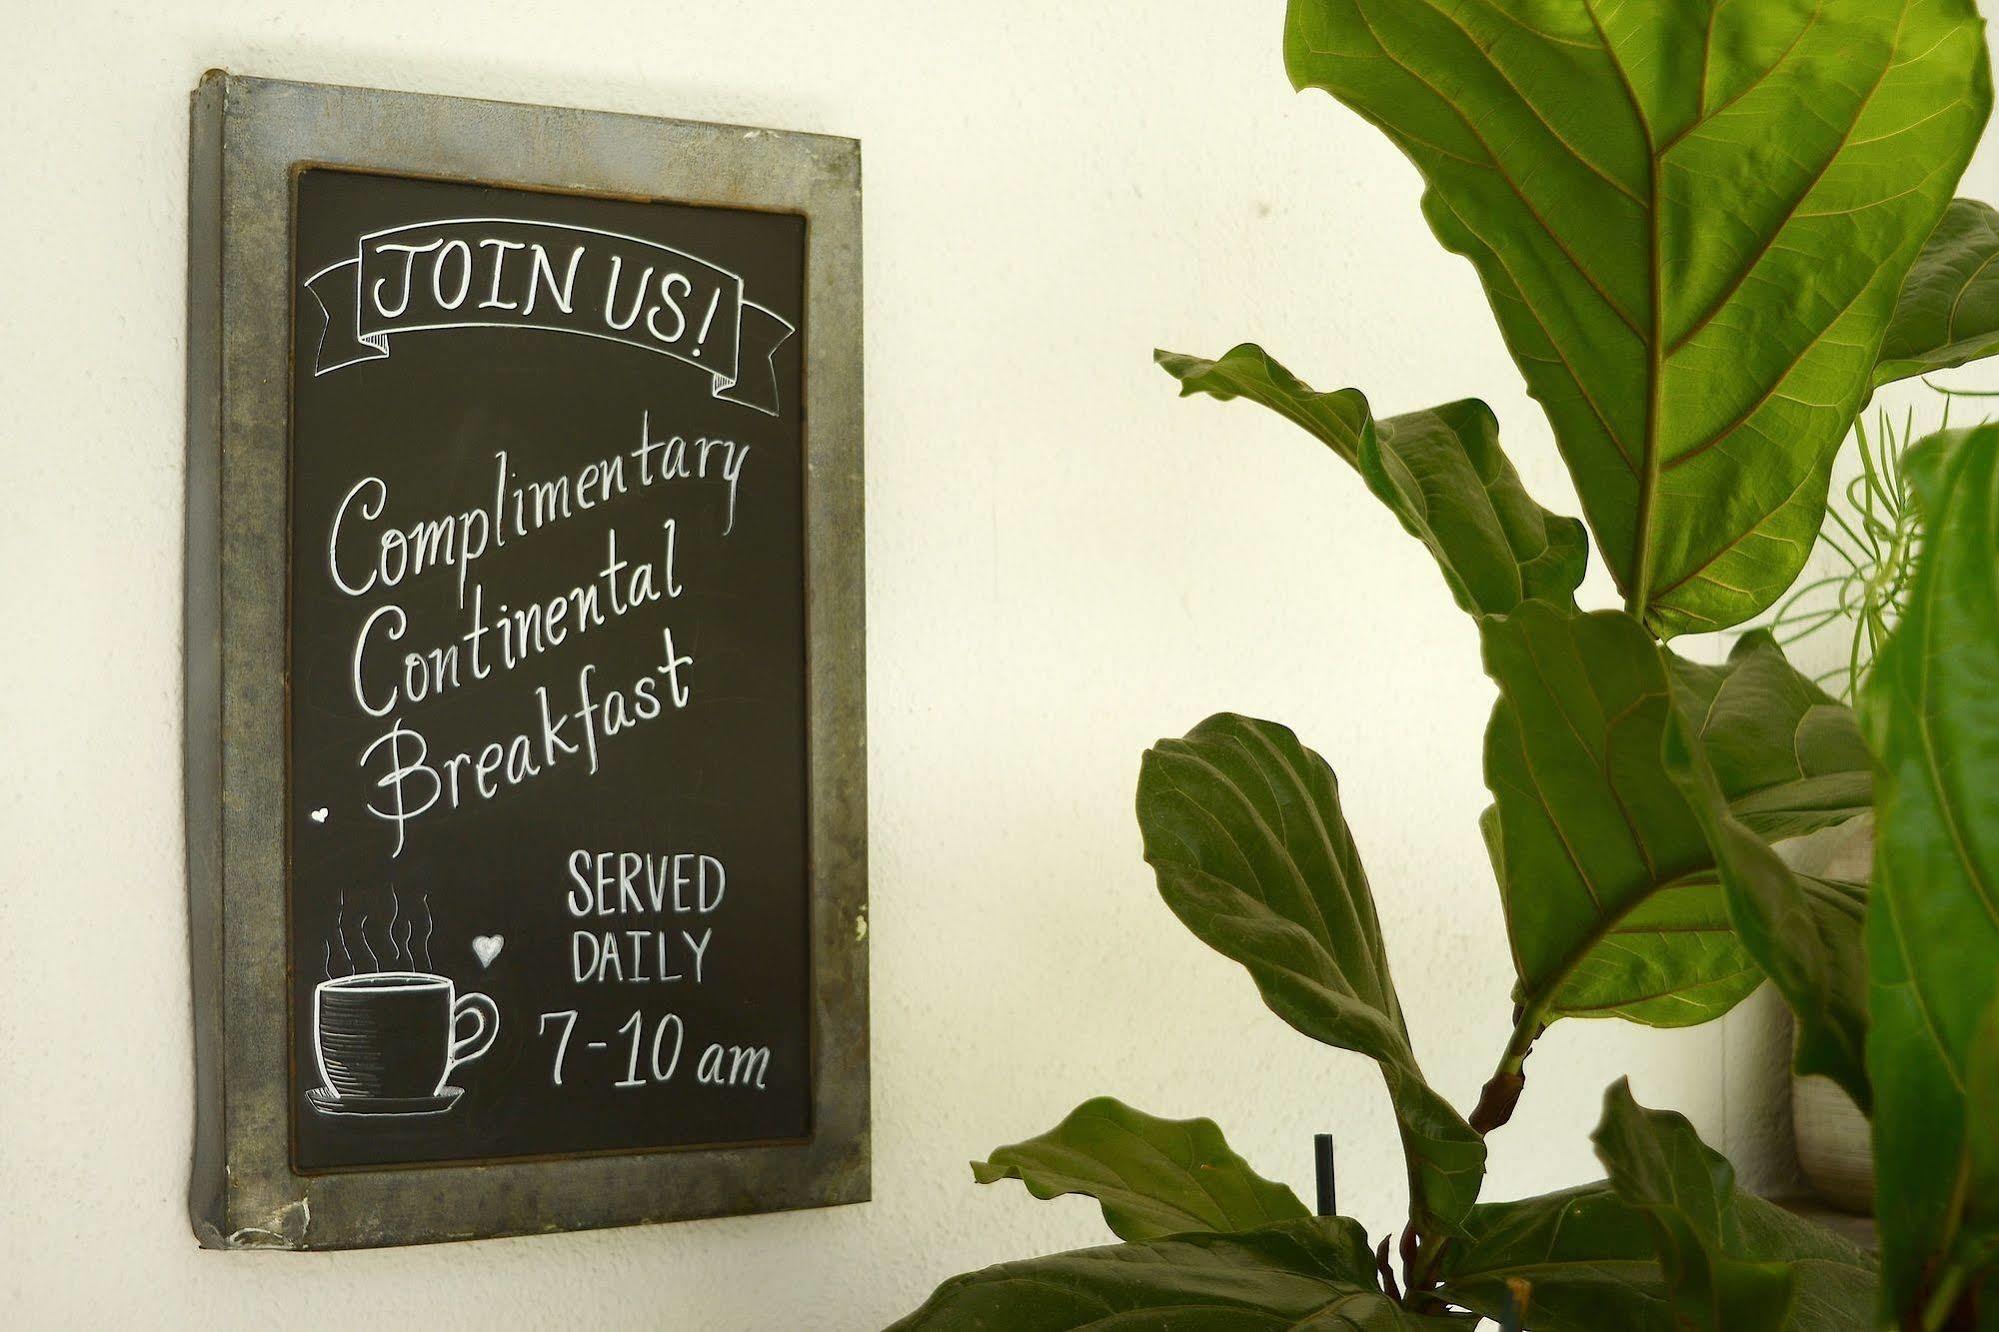 JOIN US!
Complimentary
Continental
Breakfast
SERVED
DAILY
7-10 am